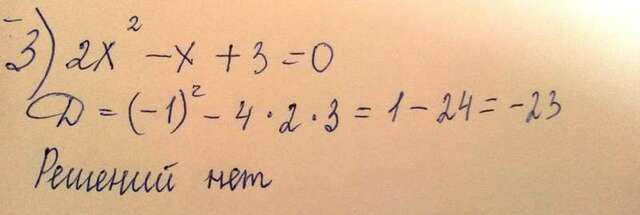 3) 2x² - x + 3 = 0
D = (-1)² - 4 · 2 · 3 = 1 - 24 = -23
Решений нет